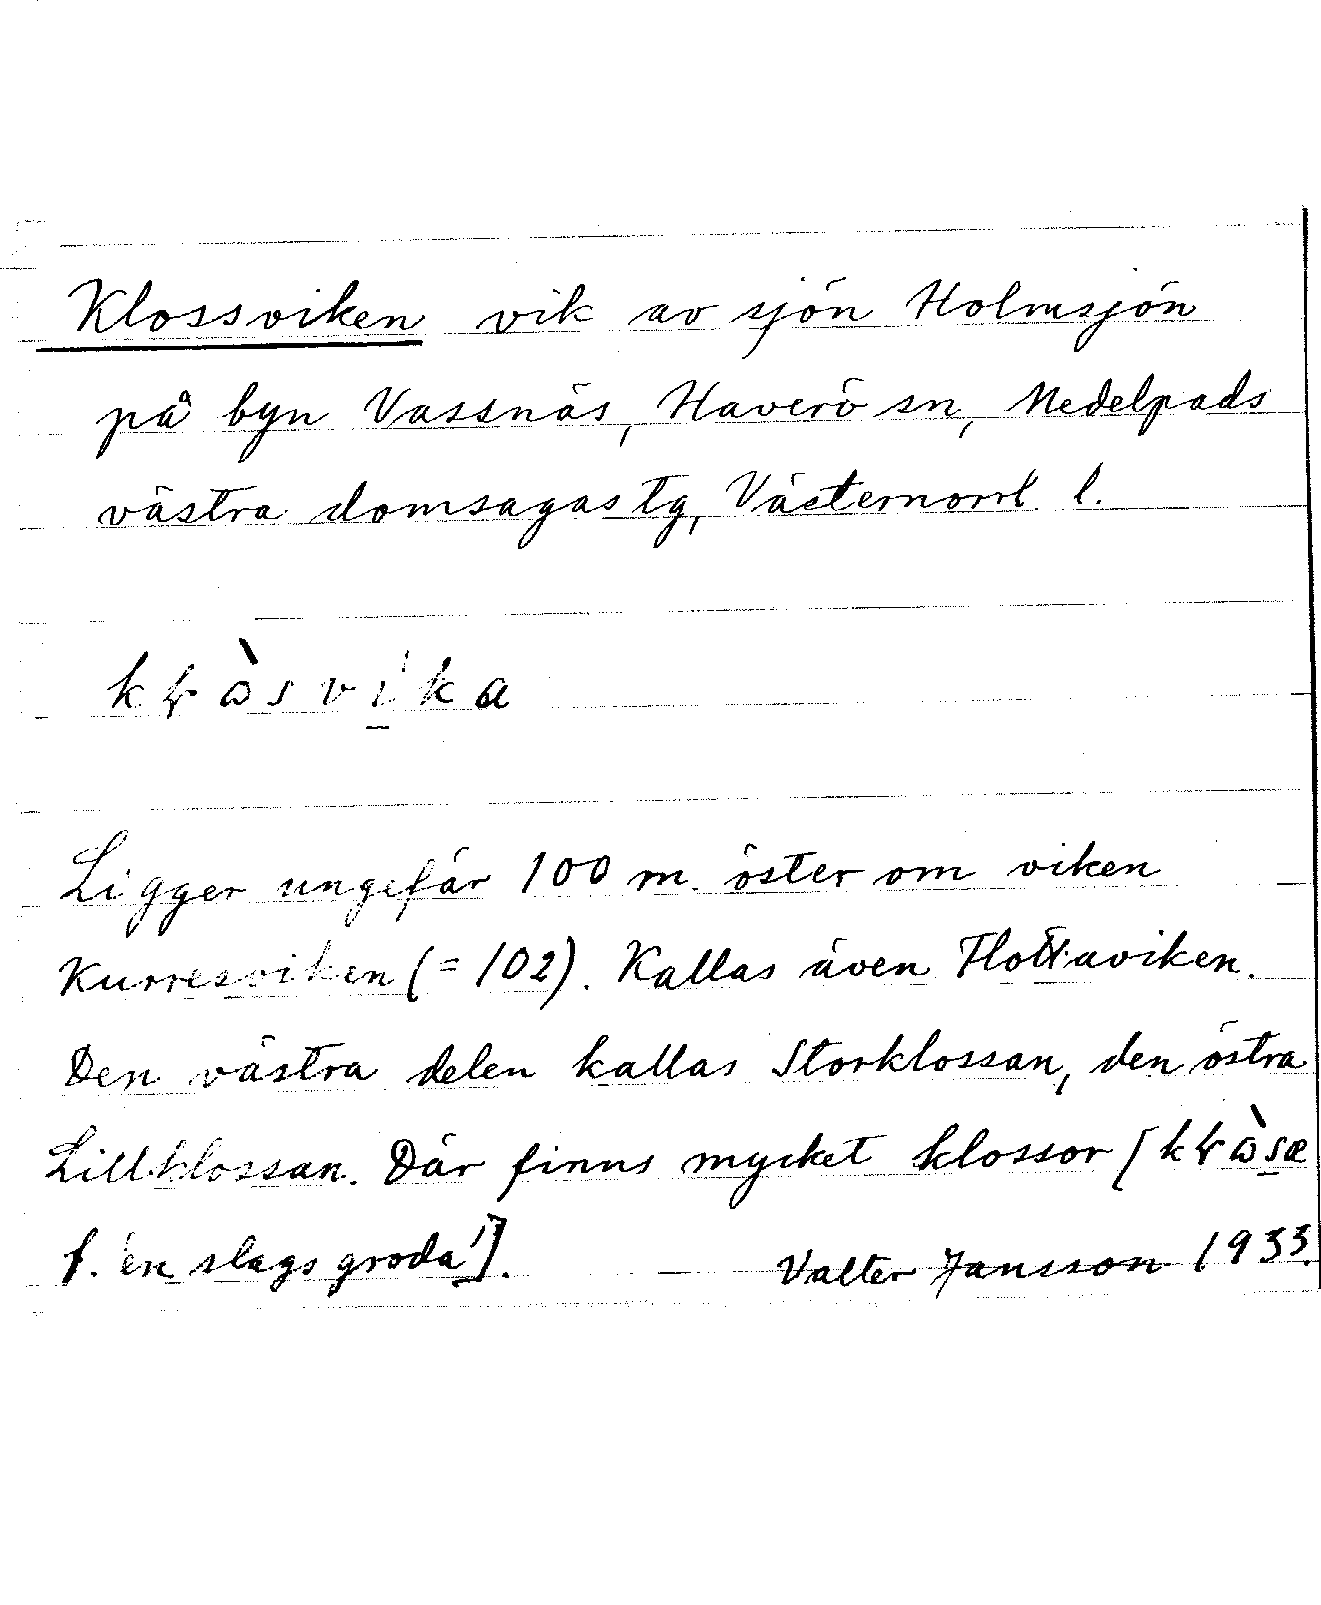 Klossviken vik av sjön Holmsjön
på byn Vassnäs, Haverö sn, Medelpads
västra domsagas tg, Västernorrl l.
Ligger ungefär 100 m. öster om viken
Kurresviken (= 102). Kallas även Flottaviken.
Den västra delen kallas Storklossan, den östra
Lillklossan. Där finns mycket klossor [
f. 'en slags groda'].
Valter Jansson 1933.